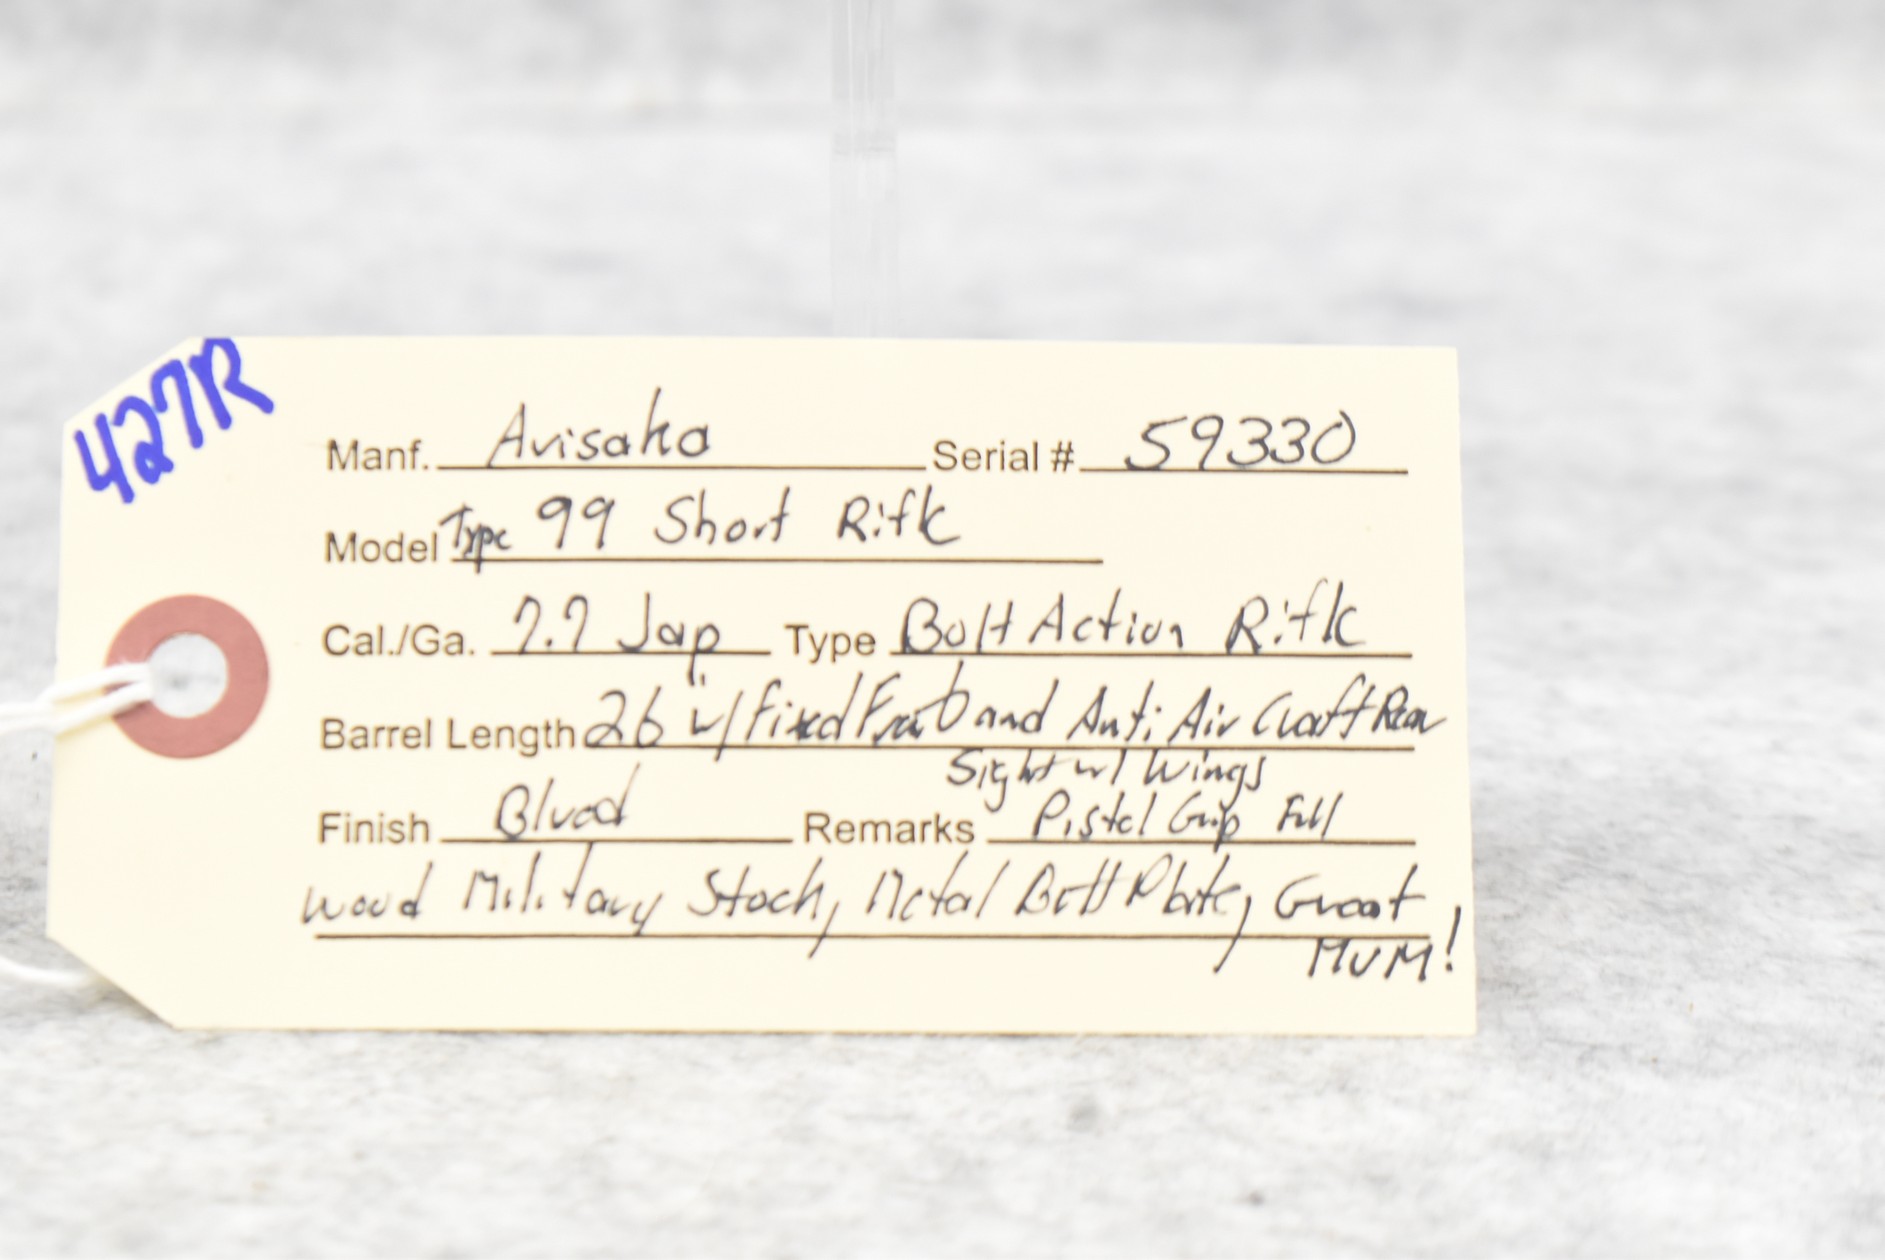 427R
Manf. Arisaka Serial # 59330
Model Type 99 Short Rifle
Cal./Ga. 7.7 Jap Type Bolt Action Rifle
Barrel Length 26 w/ Fixed Front and Anti Air Craft Rear
Sight w/ Wings
Finish Blued Remarks Pistol Grip Full
wood Military Stock, Metal Butt Plate, Great
MUM!